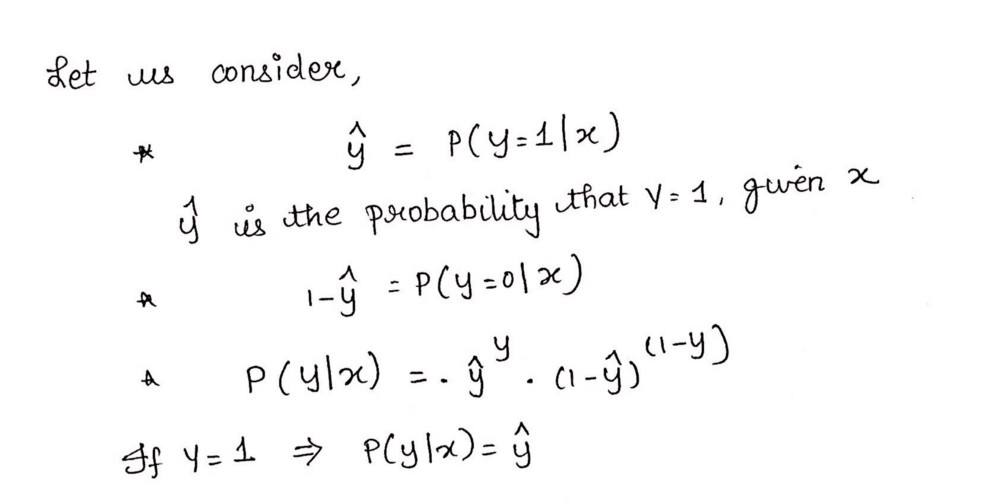 Let us consider,
* ŷ = P(y=1|x)
ŷ is the probability that y=1, given x
* 1-ŷ = P(y=0|x)
* P(y|x) = . ŷ^y . (1-ŷ)^(1-y)
If y=1 ⇒ P(y|x) = ŷ